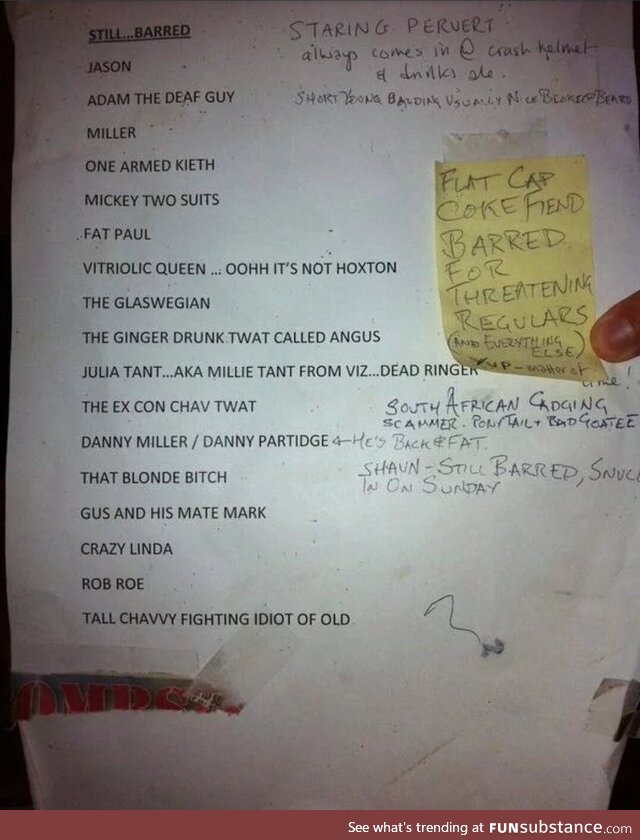 STILL...BARRED
STARING PERVERT
always comes in @ crash helmet
& drinks ale.
JASON
ADAM THE DEAF GUY
SHORT YOUNG BALDING USUALLY NICE BLOKE @ BEARD
MILLER
ONE ARMED KIETH
MICKEY TWO SUITS
FAT PAUL
VITRIOLIC QUEEN ... OOHH IT'S NOT HOXTON
THE GLASWEGIAN
THE GINGER DRUNK TWAT CALLED ANGUS
JULIA TANT...AKA MILLIE TANT FROM VIZ...DEAD RINGER
THE EX CON CHAV TWAT
DANNY MILLER / DANNY PARTIDGE ← HE'S BACK & FAT.
THAT BLONDE BITCH
GUS AND HIS MATE MARK
CRAZY LINDA
ROB ROE
TALL CHAVVY FIGHTING IDIOT OF OLD
FLAT CAP
COKE FIEND
BARRED.
FOR
THREATENING
REGULARS
(AND EVERYTHING
ELSE)
Yup - matter of
time!
SOUTH AFRICAN CADGING
SCAMMER. PONYTAIL + BAD GOATEE
SHAUN - STILL BARRED, SNUCK
IN ON SUNDAY
See what's trending at FUNsubstance.com